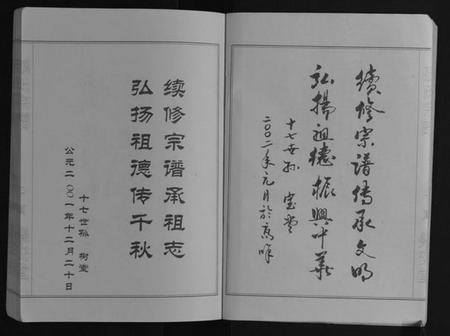 續修宗谱傳承文明
弘揚祖德振興中華
十七世孙 宝堂
二〇〇二年元月於
续修宗谱承祖志
弘扬祖德传千秋
十七世孙 树堂
公元二〇〇一年十二月二十日